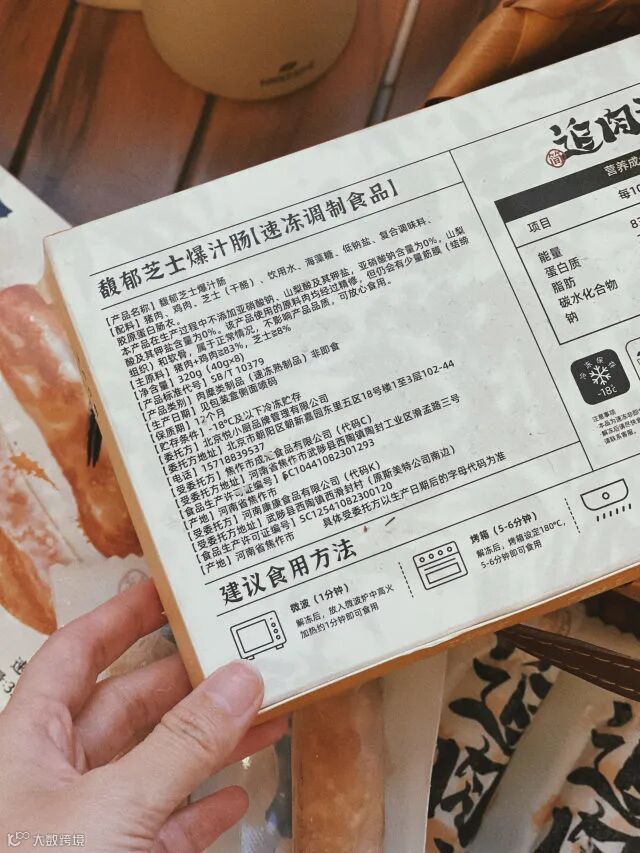 馥郁芝士爆汁肠【速冻调制食品】
【产品名称】馥郁芝士爆汁肠
【配料】猪肉、鸡肉、芝士（干酪）、饮用水、海藻糖、低钠盐、复合调味料、
胶原蛋白肠衣。
本产品在生产过程中不添加亚硝酸钠、山梨酸及其钾盐，亚硝酸钠含量为0%，山梨
酸及其钾盐含量为0%。该产品使用的原料肉均经过精修，但仍会有少量筋膜（结缔
组织）和软骨，属于正常情况，不影响产品品质，可放心食用。
【主原料】猪肉+鸡肉≥83%，芝士≥8%
【净含量】320g（40g×8）
【产品标准代号】SB/T 10379
【产品类别】肉糜类制品（速冻熟制品）非即食
【生产日期】见包装盒侧面喷码
【保质期】12个月
【贮存条件】-18℃及以下冷冻贮存
【委托方】北京悦小厨品牌管理有限公司
【委托方地址】北京市朝阳区朝新嘉园东里五区18号楼1至3层102-44
【电话】15718839537
【受委托方】焦作市成 食品有限公司（代码C）
【受委托方地址】河南省焦作市武陟县西陶镇陶封工业区滑孟路三号
【食品生产许可证编号】SC10441082301293
【产地】河南省焦作市
【受委托方】河南康康食品有限公司（代码K）
【受委托方地址】武陟县西陶镇西滑封村（原斯美特公司南边）
【食品生产许可证编号】SC12541082300120
【产地】河南省焦作市 具体受委托方以生产日期后的字母代码为准
建议食用方法
微波（1分钟）
解冻后，放入微波炉中高火
加热约1分钟即可食用
烤箱（5-6分钟）
解冻后，烤箱设定180℃，
5-6分钟即可食用
追肉
营养成
项目
每1
能量
蛋白质
脂肪
碳水化合物
钠
冷冻保存
-18℃
注意事项
大数跨境